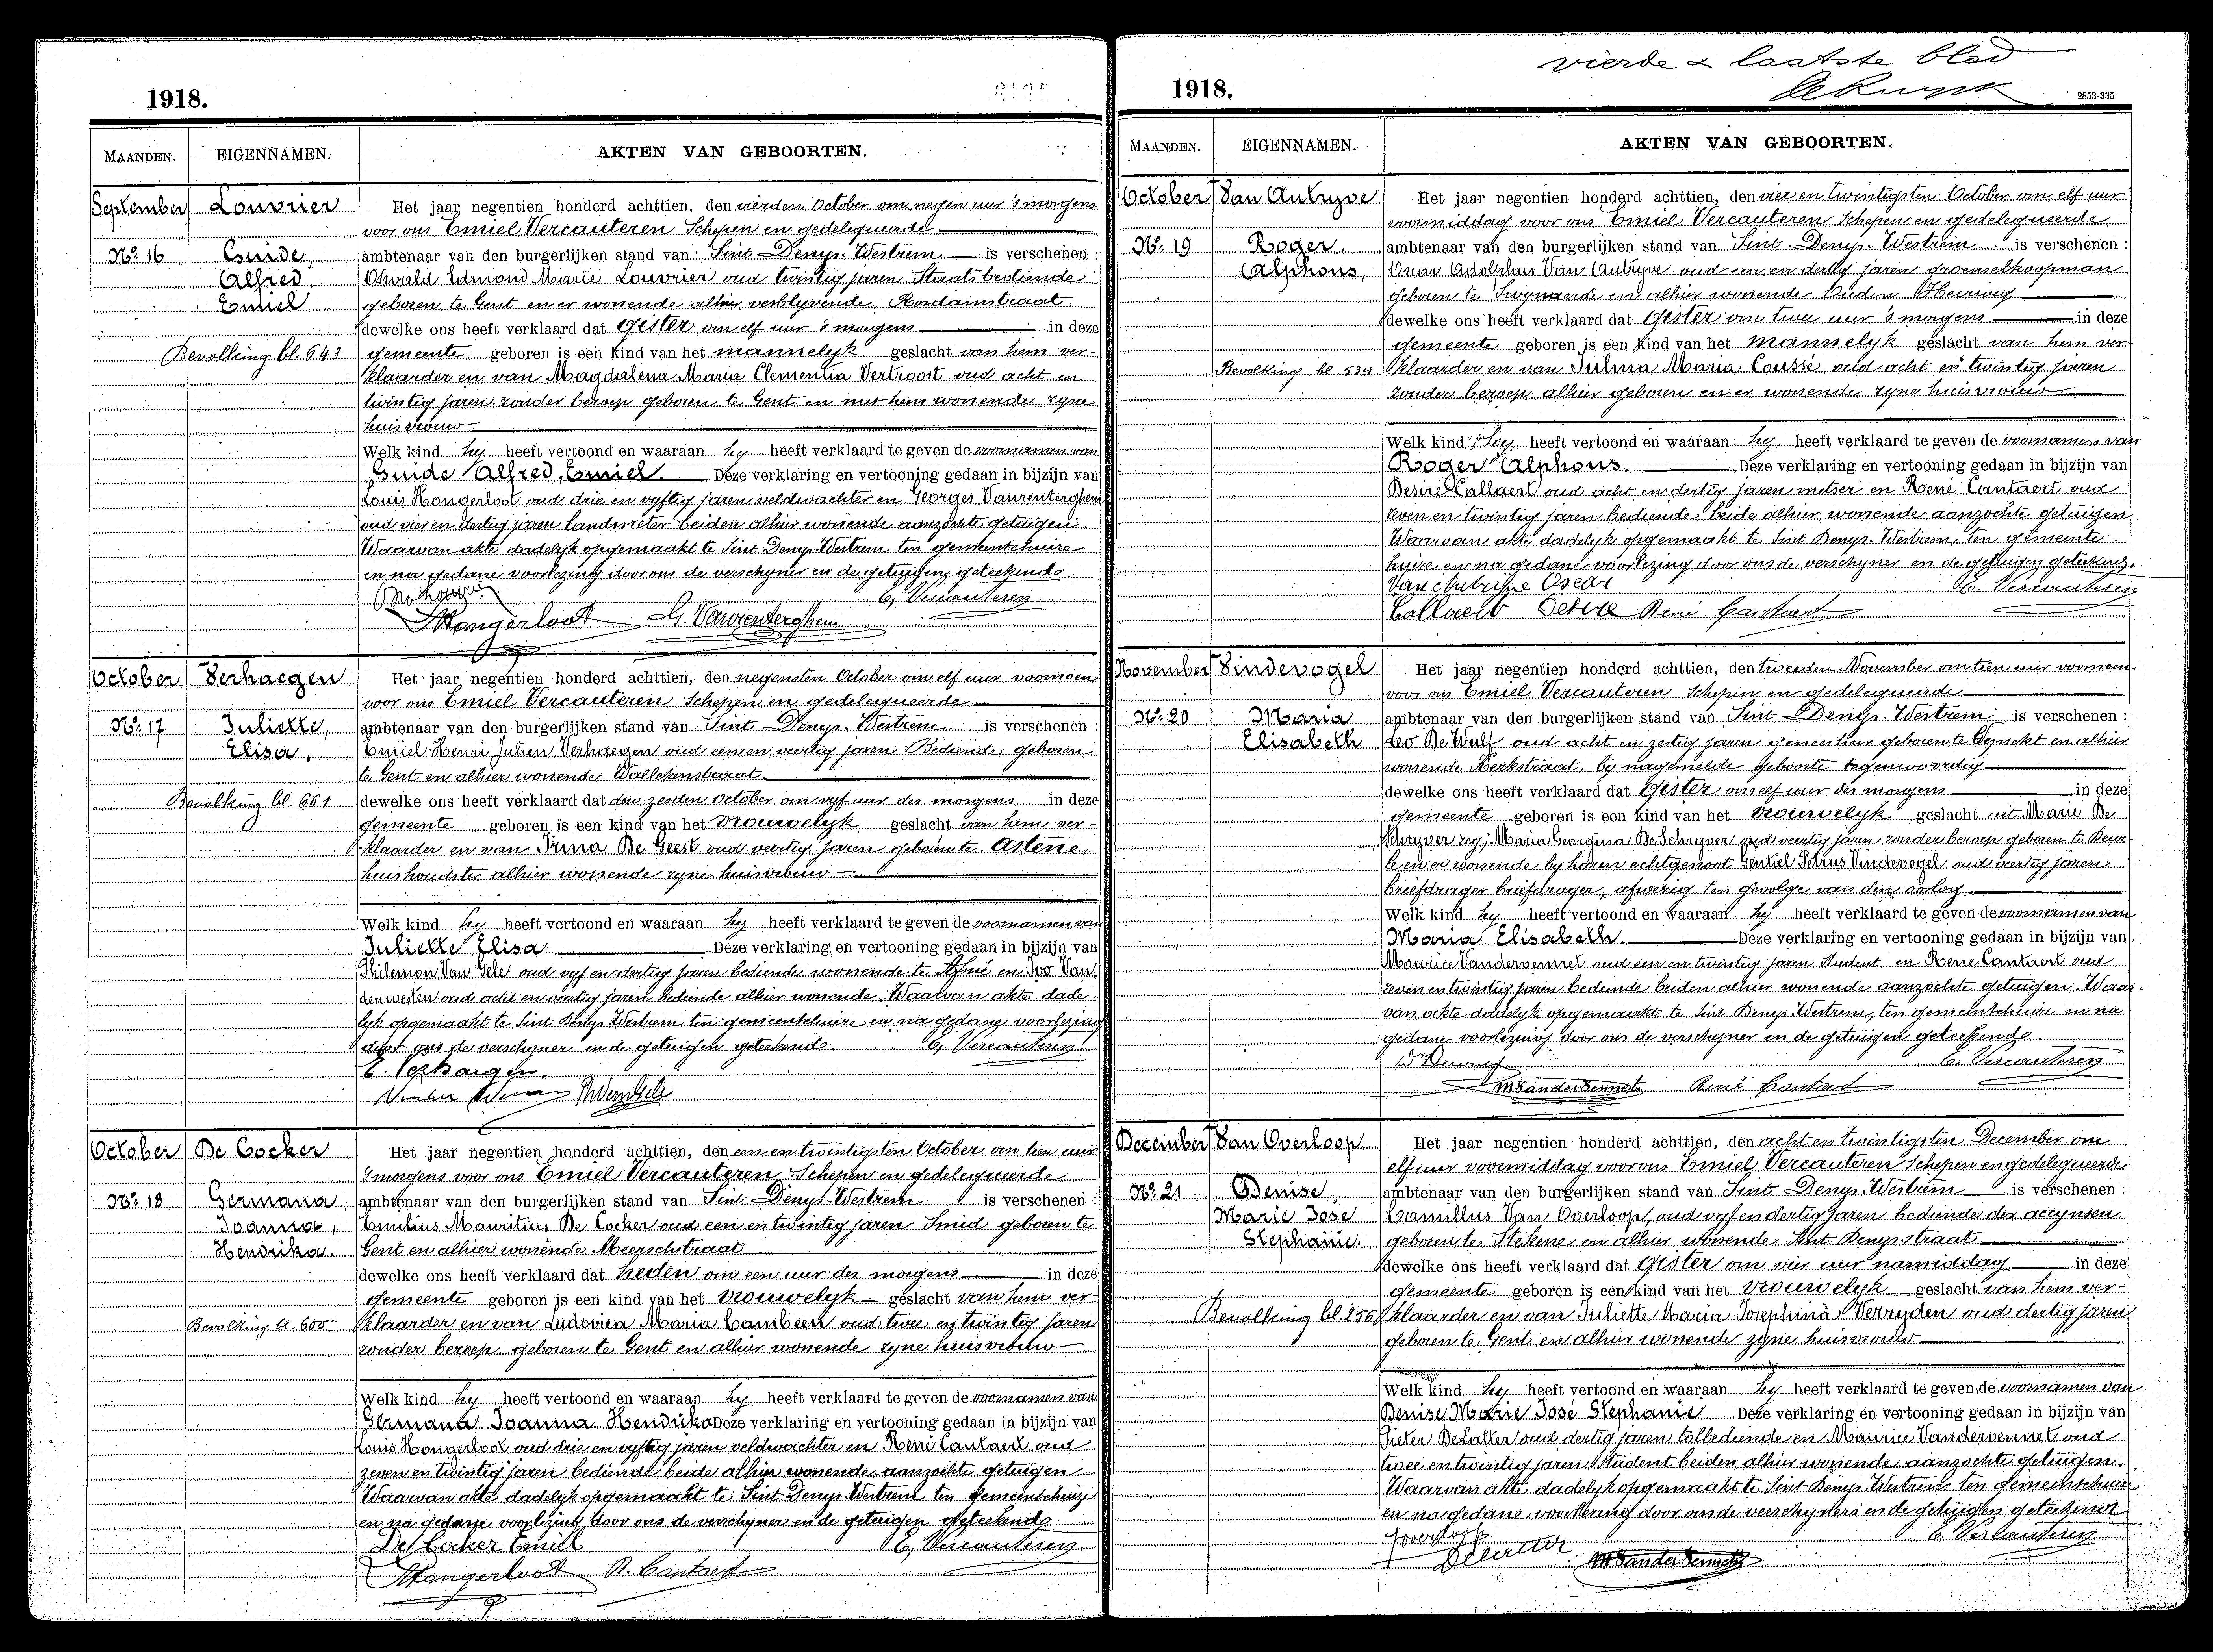 1918.
MAANDEN. EIGENNAMEN. AKTEN VAN GEBOORTEN.
September Louvrier Het jaar negentien honderd achttien, den vierden October om negen uur 's morgens
voor ons Emiel Vercauteren Schepen en gedelegueerde
No. 16 Guide, ambtenaar van den burgerlijken stand van Sint-Denys-Westrem is verschenen :
Alfred, Oswald Edmond Marie Louvrier oud twintig jaren Staatsbediende
Emiel geboren te Gent en er wonende alhier verblyvende Rosdamstraat
dewelke ons heeft verklaard dat Gister om elf uur 's morgens in deze
Bevolking bl. 643 gemeente geboren is een kind van het mannelyk geslacht van hem ver-
klaarder en van Magdalena Maria Clementia Vertroost oud acht en
twintig jaren zonder beroep geboren te Gent en met hem wonende zyne
huisvrouw
Welk kind hy heeft vertoond en waaraan hy heeft verklaard te geven de voornamen van
Guide Alfred, Emiel. Deze verklaring en vertooning gedaan in bijzijn van
Louis Hongerloot oud drie en vyftig jaren veldwachter en Georges Vanrenterghem
oud vier en dertig jaren landmeter beiden alhier wonende aanzochte getuigen.
Waarvan akte dadelyk opgemaakt te Sint Denys Westrem ten gemeentehuize
en na gedane voorlezing door ons de verschyner en de getuigen geteekend.
E, Vercauteren
Hongerloot G. Vanrenterghem
October Verhaegen Het jaar negentien honderd achttien, den negensten October om elf uur voornoen
voor ons Emiel Vercauteren Schepen en gedelegueerde
No. 17 Juliette, ambtenaar van den burgerlijken stand van Sint-Denys-Westrem is verschenen :
Elisa, Emiel Henri Julien Verhaegen oud een en veertig jaren Bediende, geboren
te Gent en alhier wonende Wallekensstraat
Bevolking bl. 661 dewelke ons heeft verklaard dat den zesden October om vyf uur des morgens in deze
gemeente geboren is een kind van het vrouwelyk geslacht van hem ver-
klaarder en van Irma De Geest oud veertig jaren geboren te Astene
huishoudster alhier wonende zyne huisvrouw
Welk kind hy heeft vertoond en waaraan hy heeft verklaard te geven de voornamen van
Juliette Elisa Deze verklaring en vertooning gedaan in bijzijn van
Philemon Van Gele oud vyf en dertig jaren bediende wonende te Afsné en Ivo Van
denwesten oud acht en veertig jaren bediende alhier wonende. Waarvan akte dade-
lyk opgemaakt te Sint Denys Westrem, ten gemeentehuize en na gedane voorlezing
door ons de verschyner en de getuigen geteekend. E, Vercauteren
E. Verhaegen.
October De Cocker Het jaar negentien honderd achttien, den een en twintigsten October om tien uur
's morgens voor ons Emiel Vercauteren Schepen en gedelegueerde
No. 18 Germana, ambtenaar van den burgerlijken stand van Sint-Denys-Westrem is verschenen :
Joanna, Emilius Mauritius De Cocker oud een en twintig jaren Smid geboren te
Hendrika. Gent en alhier wonende Meerschstraat
dewelke ons heeft verklaard dat heden om een uur des morgens in deze
gemeente geboren is een kind van het vrouwelyk geslacht van hem ver-
Bevolking bl. 605 klaarder en van Ludovica Maria Cambeen oud twee en twintig jaren
zonder beroep geboren te Gent en alhier wonende zyne huisvrouw
Welk kind hy heeft vertoond en waaraan hy heeft verklaard te geven de voornamen van
Germana Joanna Hendrika Deze verklaring en vertooning gedaan in bijzijn van
Louis Hongerloot oud drie en vyftig jaren veldwachter en René Cantaert oud
zeven en twintig jaren bediende beide alhier wonende aanzochte getuigen
Waarvan akte dadelyk opgemaakt te Sint Denys Westrem ten gemeentehuize
en na gedane voorlezing door ons de verschyner en de getuigen geteekend.
De Cocker Emiel E, Vercauteren
Hongerloot R. Cantaert
vierde & laatste blad
1918. 2853-335
MAANDEN. EIGENNAMEN. AKTEN VAN GEBOORTEN.
October Van Autryve Het jaar negentien honderd achttien, den vier en twintigsten October om elf uur
voormiddag voor ons Emiel Vercauteren Schepen en gedelegueerde
No. 19 Roger, ambtenaar van den burgerlijken stand van Sint-Denys-Westrem is verschenen :
Alphons, Oscar Adolphus Van Autryve oud een en dertig jaren groenselkoopman
geboren te Swynaerde en alhier wonende
dewelke ons heeft verklaard dat Gister om twee uur 's morgens in deze
gemeente geboren is een kind van het mannelyk geslacht van hem ver-
Bevolking bl 534 klaarder en van Julma Maria Coussé oud acht en twintig jaren
zonder beroep alhier geboren en er wonende zyne huisvrouw
Welk kind hy heeft vertoond en waaraan hy heeft verklaard te geven de voornamen van
Roger Alphons. Deze verklaring en vertooning gedaan in bijzijn van
Desire Callaert oud acht en dertig jaren metser en René Cantaert oud
zeven en twintig jaren bediende beide alhier wonende aanzochte getuigen.
Waarvan akte dadelyk opgemaakt te Sint Denys-Westrem, ten gemeente-
huize en na gedane voorlezing door ons de verschyner en de getuigen geteekend.
Van Autryve Oscar E. Vercauteren
Callaert Desire René Cantaert
November Vindevogel Het jaar negentien honderd achttien, den tweeden November om tien uur voornoen
voor ons Emiel Vercauteren Schepen en gedelegueerde
No. 20 Maria ambtenaar van den burgerlijken stand van Sint-Denys-Westrem is verschenen :
Elisabeth Leo De Wulf oud acht en zestig jaren geneesheer geboren te en alhier
wonende Kerkstraat, by nagemelde geboorte tegenwoordig
dewelke ons heeft verklaard dat Gister om elf uur des morgens in deze
gemeente geboren is een kind van het vrouwelyk geslacht uit Marie De
Schryver zeg: Maria Georgina De Schryver oud veertig jaren zonder beroep geboren te Deur-
le en er wonende by haren echtgenoot Gentiel Petrus Vindevogel oud veertig jaren
briefdrager briefdrager, afwezig ten gevolge van den oorlog
Welk kind hy heeft vertoond en waaraan hy heeft verklaard te geven de voornamen van
Maria Elisabeth. Deze verklaring en vertooning gedaan in bijzijn van
Maurice Vandervennet oud een en twintig jaren Student en Rene Cantaert oud
zeven en twintig jaren bediende beiden alhier wonende aanzochte getuigen. Waar-
van akte dadelyk opgemaakt te Sint Denys Westrem, ten gemeentehuize en na
gedane voorlezing door ons de verschyner en de getuigen geteekend.
E. Vercauteren
MVandervennet René Cantaert
December Van Overloop Het jaar negentien honderd achttien, den acht en twintigsten December om
elf uur voormiddag voor ons Emiel Vercauteren Schepen en gedelegueerde
No. 21 Denise, ambtenaar van den burgerlijken stand van Sint-Denys-Westrem is verschenen :
Marie José Camillus Van Overloop, oud vyf en dertig jaren bediende der accynsen
Stephanie. geboren te Stekene en alhier wonende Sint Denysstraat
dewelke ons heeft verklaard dat Gister om vier uur namiddag in deze
gemeente geboren is een kind van het vrouwelyk geslacht van hem ver-
Bevolking bl. 256 klaarder en van Juliette Maria Josephina Verryden oud dertig jaren
geboren te Gent en alhier wonende zyne huisvrouw
Welk kind hy heeft vertoond en waaraan hy heeft verklaard te geven de voornamen van
Denise, Marie José Stephanie Deze verklaring en vertooning gedaan in bijzijn van
Pieter Delatter oud dertig jaren tolbediende en Maurice Vandervennet oud
twee en twintig jaren Student beiden alhier wonende aanzochte getuigen.
Waarvan akte dadelyk opgemaakt te Sint Denys-Westrem ten gemeentehuize
en na gedane voorlezing door ons de verschyners en de getuigen geteekend
E Vercauteren
Delatter MVandervennet